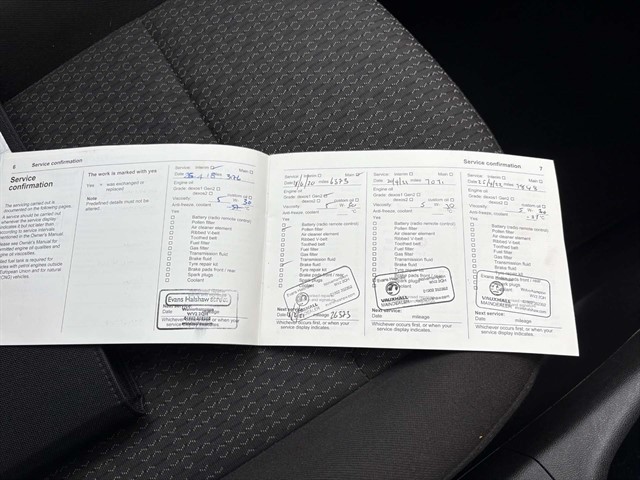 6 Service confirmation
Service
confirmation
The servicing carried out is
documented on the following pages.
A service should be carried out
whenever the service display
indicates it but not later than
according to service intervals,
mentioned in the Owner's Manual.
Please see Owner's Manual for
permitted engine oil qualities and
engine oil viscosities.
European Union and for natural
(CNG) vehicles.
The work is marked with yes
Yes = was exchanged or
replaced
Note
Predefined details must not be
altered.
Service: Interim Main
Date mileage 376
Engine oil
Grade: dexos1 Gen2
dexos2 custom oil
Viscosity: 5 W 30
Anti-freeze, coolant °C
Yes
Battery (radio remote control)
Pollen filter
Air cleaner element
Ribbed V-belt
Toothed belt
Fuel filter
Gas filter
Transmission fluid
Brake fluid
Tyre repair kit
Brake pads front / rear
Spark plugs
Coolant
Evans Halshaw
WV3 2QH
Next service:
Date mileage
Whichever occurs first, or when your
service display indicates.
Service: Interim Main
Date mileage 6573
Engine oil
Grade: dexos1 Gen2
dexos2 custom oil
Viscosity: 5 W 30
Anti-freeze, coolant °C
Yes
Battery (radio remote control)
Pollen filter
Air cleaner element
Ribbed V-belt
Toothed belt
Fuel filter
Gas filter
Transmission fluid
Brake fluid
Tyre repair kit
Brake pads front / rear
Next service:
Date mileage 26573
Whichever occurs first, or when your
service display indicates.
Service confirmation 7
Service: Interim Main
Date mileage 7071
Engine oil
Grade: dexos1 Gen2
dexos2 custom oil
Viscosity: 5 W 30
Anti-freeze, coolant °C
Yes
Battery (radio remote control)
Pollen filter
Air cleaner element
Ribbed V-belt
Toothed belt
Fuel filter
Gas filter
Transmission fluid
Brake fluid
Tyre repair kit
Brake pads front / rear
VAUXHALL
Next service:
Date mileage
Whichever occurs first, or when your
service display indicates.
Service: Interim Main
Date mileage
Engine oil
Grade: dexos1 Gen2
dexos2 custom oil
Viscosity: 5 W 30
Anti-freeze, coolant °C
Yes
Battery (radio remote control)
Pollen filter
Air cleaner element
Ribbed V-belt
Toothed belt
Fuel filter
Gas filter
Transmission fluid
Brake fluid
Tyre repair kit
Brake pads front / rear
VAUXHALL
Next service:
Date mileage
Whichever occurs first, or when your
service display indicates.